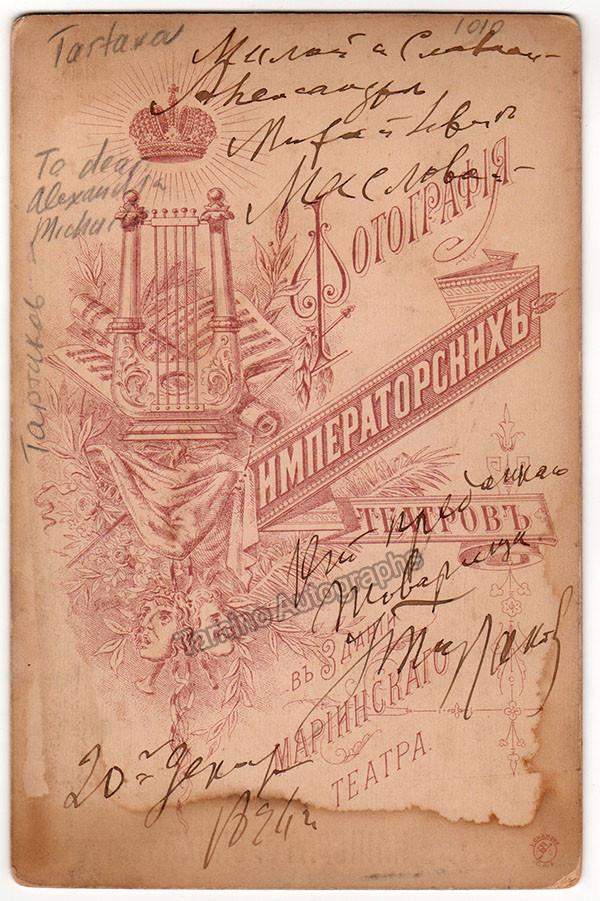 Tartakov
1010
Милой и Славной
Александре
Михайловне
Масловой
To dear
Alexandra
Michai
Тартаков
Фотографія
ИМПЕРАТОРСКИХЪ
ТЕАТРОВЪ
отъ преданнаго
товарища
Тартаков
Tamino Autographs
въ Зданіи
МАРІИНСКАГО
ТЕАТРА.
20го Декабр